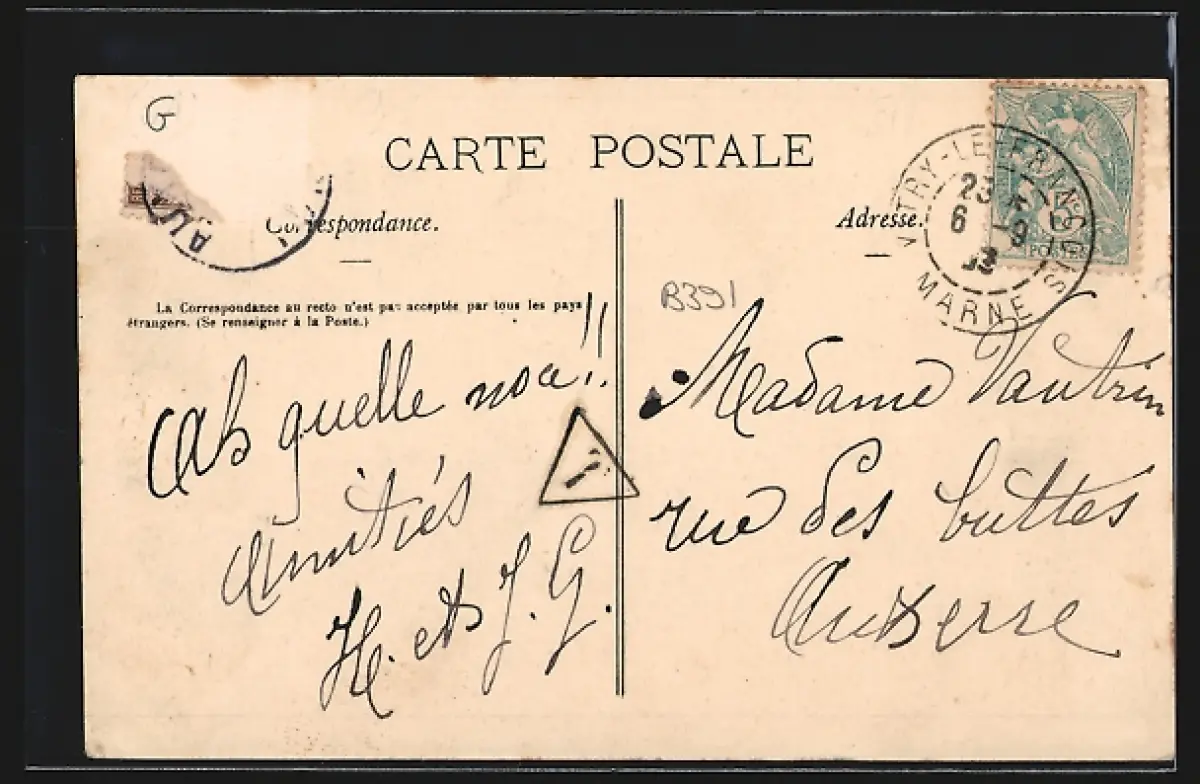 G
CARTE POSTALE
Correspondance.
Adresse.
La Correspondance au recto n'est pas acceptée par tous les pays
étrangers. (Se renseigner à la Poste.)
VITRY-LE-FRANÇOIS
23
6 - 9
MARNE
5
POSTES
AU
B391
Ah quelle noce!!
Amitiés
H. et J. G.
Madame Vautrin
rue des buttes
Auxerre